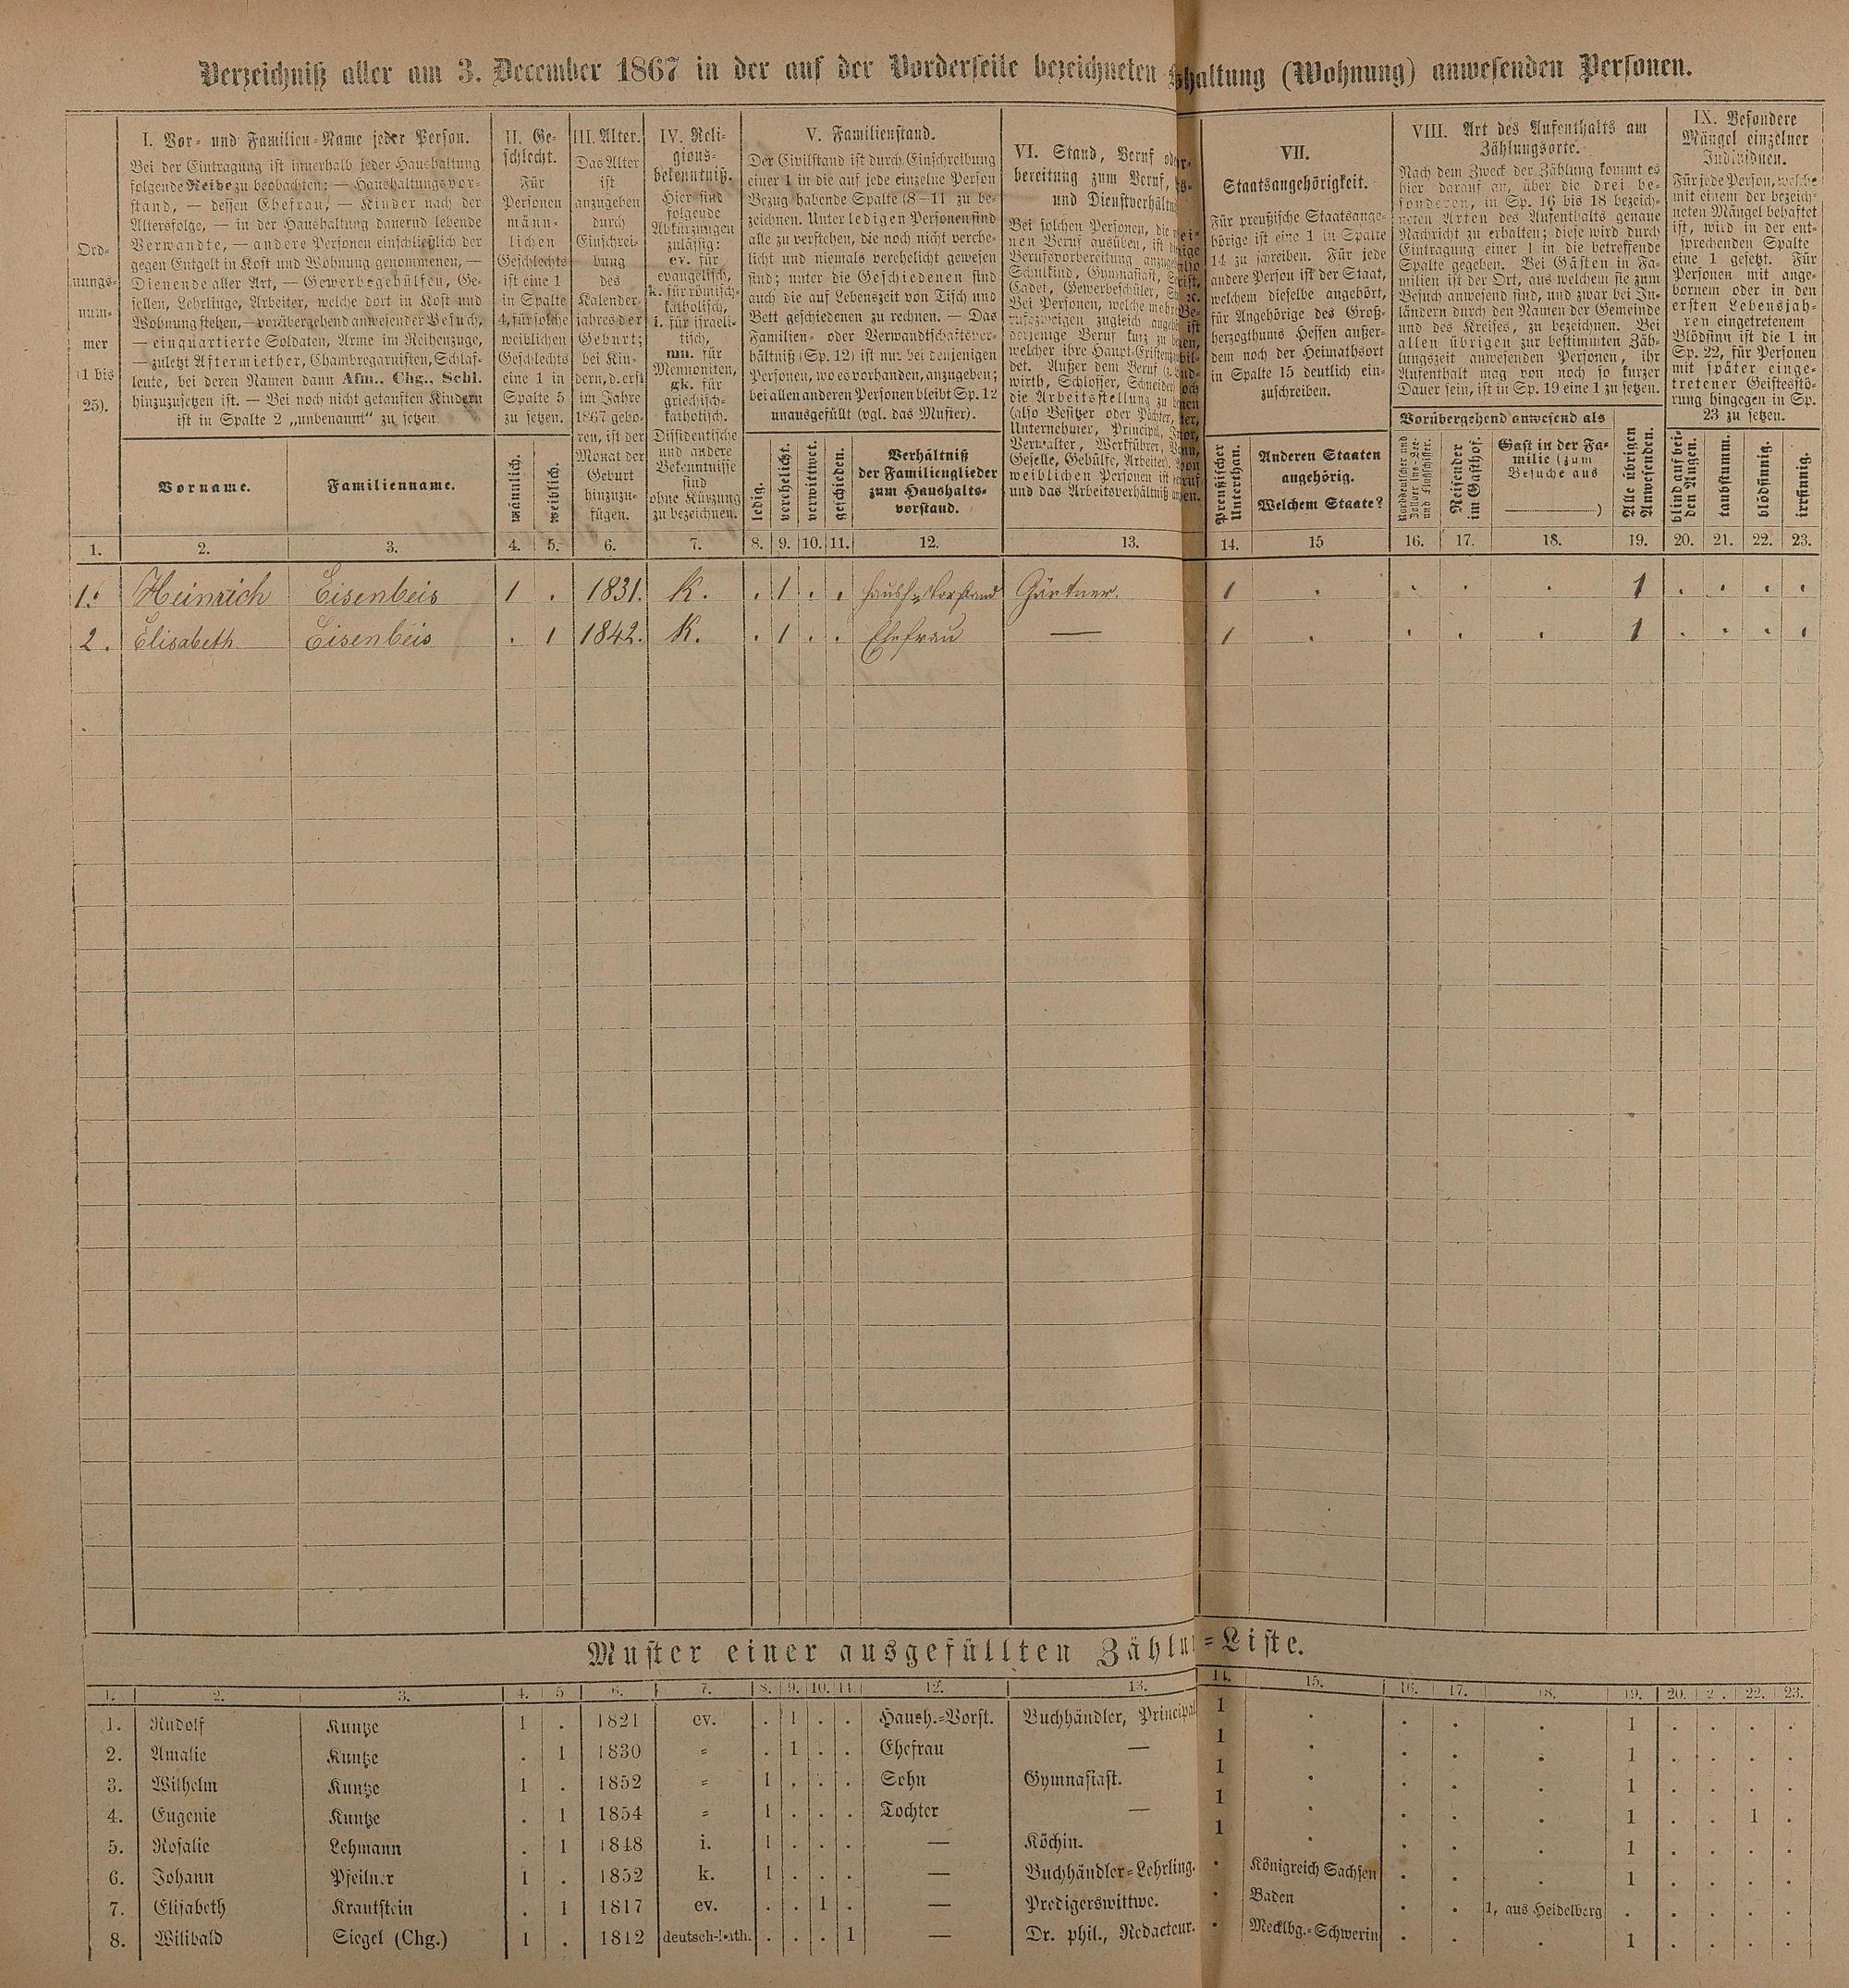 Verzeichniß aller am 3. December 1867 in der auf der Vorderseite bezeichneten haltung (Wohnung) anwesenden Personen.
Ord-
nungs-
num-
mer
(1 bis
25).
I. Vor- und Familien-Name jeder Person.
Bei der Eintragung ist innerhalb jeder Haushaltung
folgende Reihe zu beobachten: — Haushaltungsvor-
stand, — dessen Ehefrau, — Kinder nach der
Altersfolge, — in der Haushaltung dauernd lebende
Verwandte, — andere Personen einschließlich der
gegen Entgelt in Kost und Wohnung genommenen, —
Dienende aller Art, — Gewerbsgehülfen, Ge-
sellen, Lehrlinge, Arbeiter, welche dort in Kost und
Wohnung stehen, — vorübergehend anwesender Besuch,
— einquartierte Soldaten, Arme im Reihenzuge,
— zuletzt Aftermiether, Chambregarnisten, Schlaf-
leute, bei deren Namen dann Afm., Chg., Schl.
hinzuzusetzen ist. — Bei noch nicht getauften Kindern
ist in Spalte 2 „unbenannt“ zu setzen.
Vorname.
Familienname.
II. Ge-
schlecht.
Für
Personen
männ-
lichen
Geschlechts
ist eine 1
in Spalte
4, für solche
weiblichen
Geschlechts
eine 1 in
Spalte 5
zu setzen.
männlich.
weiblich.
III. Alter.
Das Alter
ist
anzugeben
durch
Einschrei-
bung
des
Kalender-
jahres der
Geburt;
bei Kin-
dern, d. erst
im Jahre
1867 gebo-
ren, ist der
Monat der
Geburt
hinzuzu-
fügen.
IV. Reli-
gions-
bekenntniß.
Hier sind
folgende
Abkürzungen
zulässig:
ev. für
evangelisch,
k. für römisch-
katholisch,
i. für israeli-
tisch,
mn. für
Mennoniten,
gk. für
griechisch-
katholisch.
Dissidentische
und andere
Bekenntnisse
sind
ohne Kürzung
zu bezeichnen.
V. Familienstand.
Der Civilstand ist durch Einschreibung
einer 1 in die auf jede einzelne Person
Bezug habende Spalte (8—11) zu be-
zeichnen. Unter ledigen Personen sind
alle zu verstehen, die noch nicht verehe-
licht und niemals verehelicht gewesen
sind; unter die Geschiedenen sind
auch die auf Lebenszeit von Tisch und
Bett geschiedenen zu rechnen. — Das
Familien- oder Verwandtschaftsver-
hältniß (Sp. 12) ist nur bei denjenigen
Personen, wo es vorhanden, anzugeben;
bei allen anderen Personen bleibt Sp. 12
unausgefüllt (vgl. das Muster).
ledig.
verehelicht.
verwittwet.
geschieden.
Verhältniß
der Familienglieder
zum Haushalts-
vorstand.
VI. Stand, Beruf
bereitung zum Beruf,
und Dienstverhältn
Bei solchen Personen, die
nen Beruf ausüben, ist
Berufsvorbereitung
Schulkind, Gymnasiast,
Cadet, Gewerbeschüler,
Bei Personen, welche
rufszweigen zugleich
derjenige Beruf kurz zu
welcher ihre Haupt-Existenz
det. Außer dem Beruf
wirth, Schlosser, Schneider
die Arbeitsstellung zu
(also Besitzer oder Pächter,
Unternehmer, Principal,
Verwalter, Werkführer,
Geselle, Gehülfe, Arbeiter).
weiblichen Personen ist
und das Arbeitsverhältniß
VII.
Staatsangehörigkeit.
Für preußische Staatsange-
hörige ist eine 1 in Spalte
14 zu schreiben. Für jede
andere Person ist der Staat,
welchem dieselbe angehört,
für Angehörige des Groß-
herzogthums Hessen außer-
dem noch der Heimathsort
in Spalte 15 deutlich ein-
zuschreiben.
Preußischer
Unterthan.
Anderen Staaten
angehörig.
Welchem Staate?
VIII. Art des Aufenthalts am
Zählungsorte.
Nach dem Zweck der Zählung kommt es
hier darauf an, über die drei be-
sonderen, in Sp. 16 bis 18 bezeich-
neten Arten des Aufenthalts genaue
Nachricht zu erhalten; diese wird durch
Eintragung einer 1 in die betreffende
Spalte gegeben. Bei Gästen in Fa-
milien ist der Ort, aus welchem sie zum
Besuch anwesend sind, und zwar bei In-
ländern durch den Namen der Gemeinde
und des Kreises, zu bezeichnen. Bei
allen übrigen zur bestimmten Zäh-
lungszeit anwesenden Personen, ihr
Aufenthalt mag von noch so kurzer
Dauer sein, ist in Sp. 19 eine 1 zu setzen.
Vorübergehend anwesend als
Norddeutscher und
Zollvereins-See-
und Flußschiffer.
Reisender
im Gasthof.
Gast in der Fa-
milie (zum
Besuche aus
)
Alle übrigen
Anwesenden.
IX. Besondere
Mängel einzelner
Individuen.
Für jede Person, welche
mit einem der bezeich-
neten Mängel behaftet
ist, wird in der ent-
sprechenden Spalte
eine 1 gesetzt. Für
Personen mit ange-
bornem oder in den
ersten Lebensjah-
ren eingetretenem
Blödsinn ist die 1 in
Sp. 22, für Personen
mit später einge-
tretener Geistesstö-
rung hingegen in Sp.
23 zu setzen.
blind auf bei-
den Augen.
taubstumm.
blödsinnig.
irrsinnig.
1. 2. 3. 4. 5. 6. 7. 8. 9. 10. 11. 12. 13. 14. 15 16. 17. 18. 19. 20. 21. 22. 23.
1. Heinrich Eisenbeis 1 . 1831. K. . 1 . . Haush=Vorstand Gärtner. 1 . . . . 1 . . . .
2. Elisabeth Eisenbeis . 1 1842. K. . 1 . . Ehefrau — 1 . . . . 1 . . . .
Muster einer ausgefüllten Zählu=Liste.
1. 2. 3. 4. 5 6. 7. 8. 9. 10. 11. 12. 13. 14. 15. 16. 17. 18. 19. 20. 2 . 22. 23.
1. Rudolf Kuntze 1 . 1821 ev. . 1 . . Haush.=Vorst. Buchhändler, Principal 1 . . . . 1 . . . .
2. Amalie Kuntze . 1 1830 = . 1 . . Ehefrau — 1 . . . . 1 . . . .
3. Wilhelm Kuntze 1 . 1852 = 1 . . . Sohn Gymnasiast. 1 . . . . 1 . . . .
4. Eugenie Kuntze . 1 1854 = 1 . . . Tochter — 1 . . . . 1 . . 1 .
5. Rosalie Lehmann . 1 1848 i. 1 . . . — Köchin. 1 . . . . 1 . . . .
6. Johann Pfeilner 1 . 1852 k. 1 . . . — Buchhändler=Lehrling. . Königreich Sachsen . . . 1 . . . .
7. Elisabeth Krautstein . 1 1817 ev. . . 1 . — Predigerswittwe. . Baden . . 1, aus Heidelberg . . . . .
8. Wilibald Siegel (Chg.) 1 . 1812 deutsch-kath. . . . 1 — Dr. phil., Redacteur. . Mecklbg.=Schwerin . . . 1 . . . .